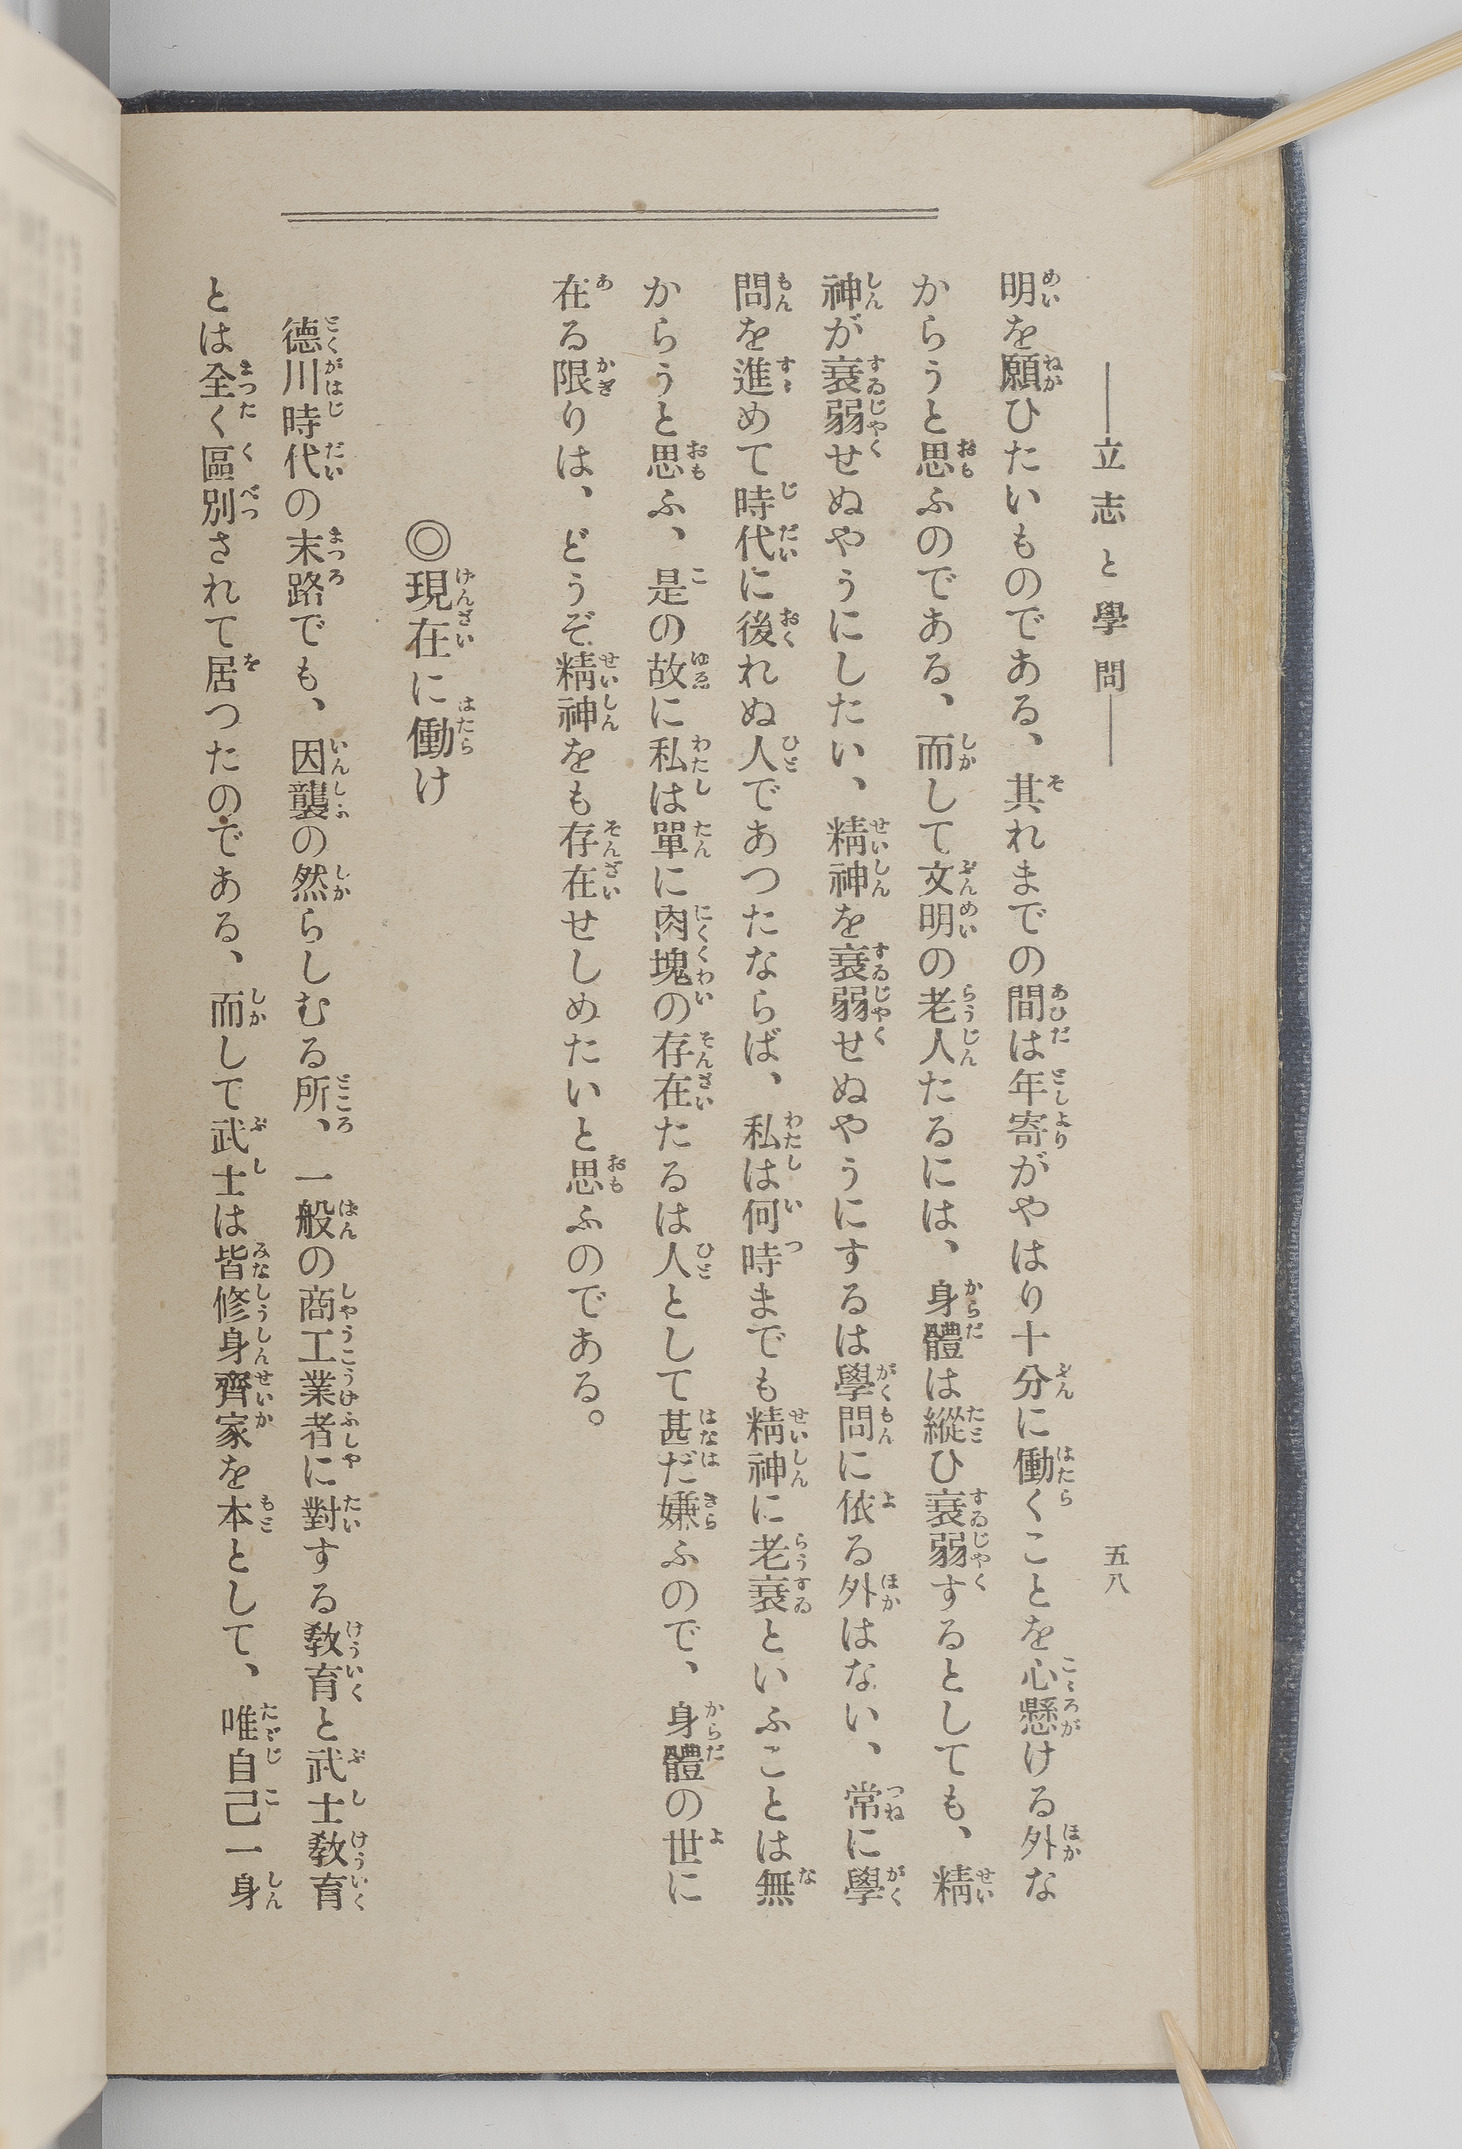 ――立志と學問――
五八
明を願ひたいものである、其れまでの間は年寄がやはり十分に働くことを心懸ける外な
からうと思ふのである、而して文明の老人たるには、身體は縱ひ衰弱するとしても、精
神が衰弱せぬやうにしたい、精神を衰弱せぬやうにするは學問に依る外はない、常に學
問を進めて時代に後れぬ人であつたならば、私は何時までも精神に老衰といふことは無
からうと思ふ、是の故に私は單に肉塊の存在たるは人として甚だ嫌ふので、身體の世に
在る限りは、どうぞ精神をも存在せしめたいと思ふのである。
◎現在に働け
德川時代の末路でも、因襲の然らしむる所、一般の商工業者に對する敎育と武士敎育
とは全く區別されて居つたのである、而して武士は皆修身齊家を本として、唯自己一身